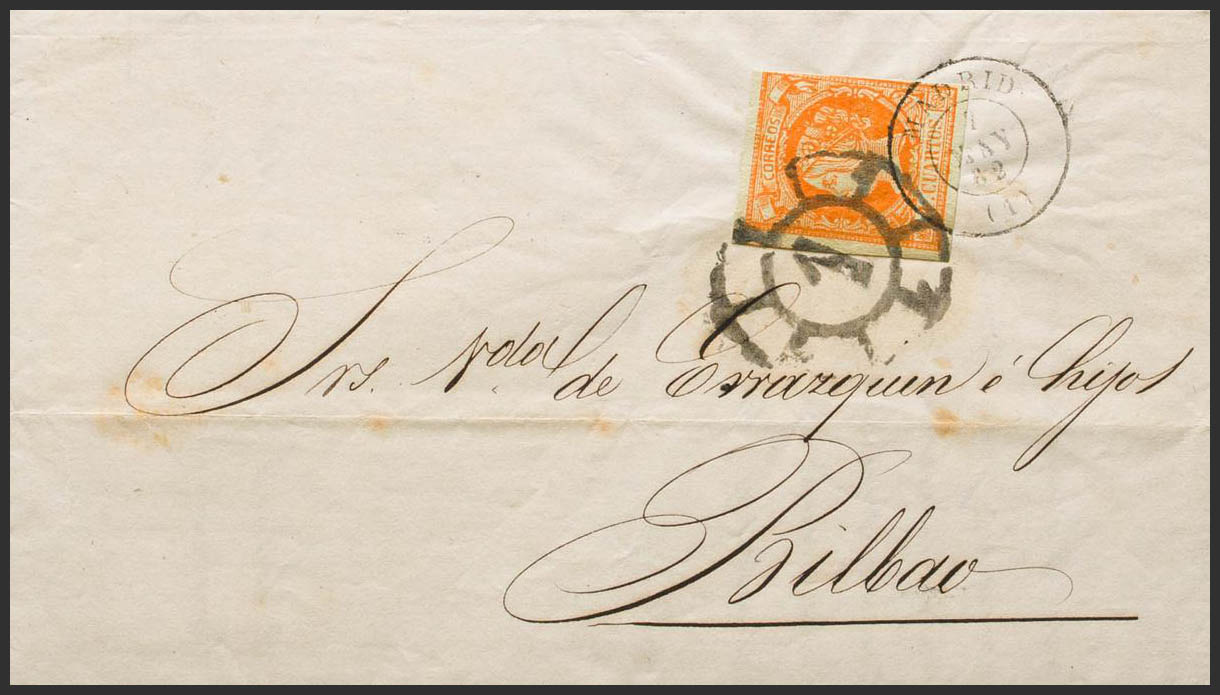 CORREOS
CUARTOS
MADRID
1
MAY
62
(1)
1
Srs. Vda de Errazquin é hijos
Bilbao